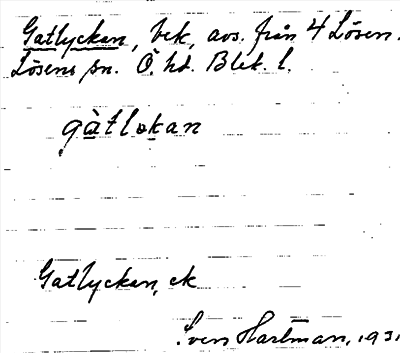 Gatlyckan, bek, avs. från 4 Lösen.
Lösens sn. Ö. hd. Blek. l.
gàtlokan
Gatlyckan, ek
Sven Hartman, 1931